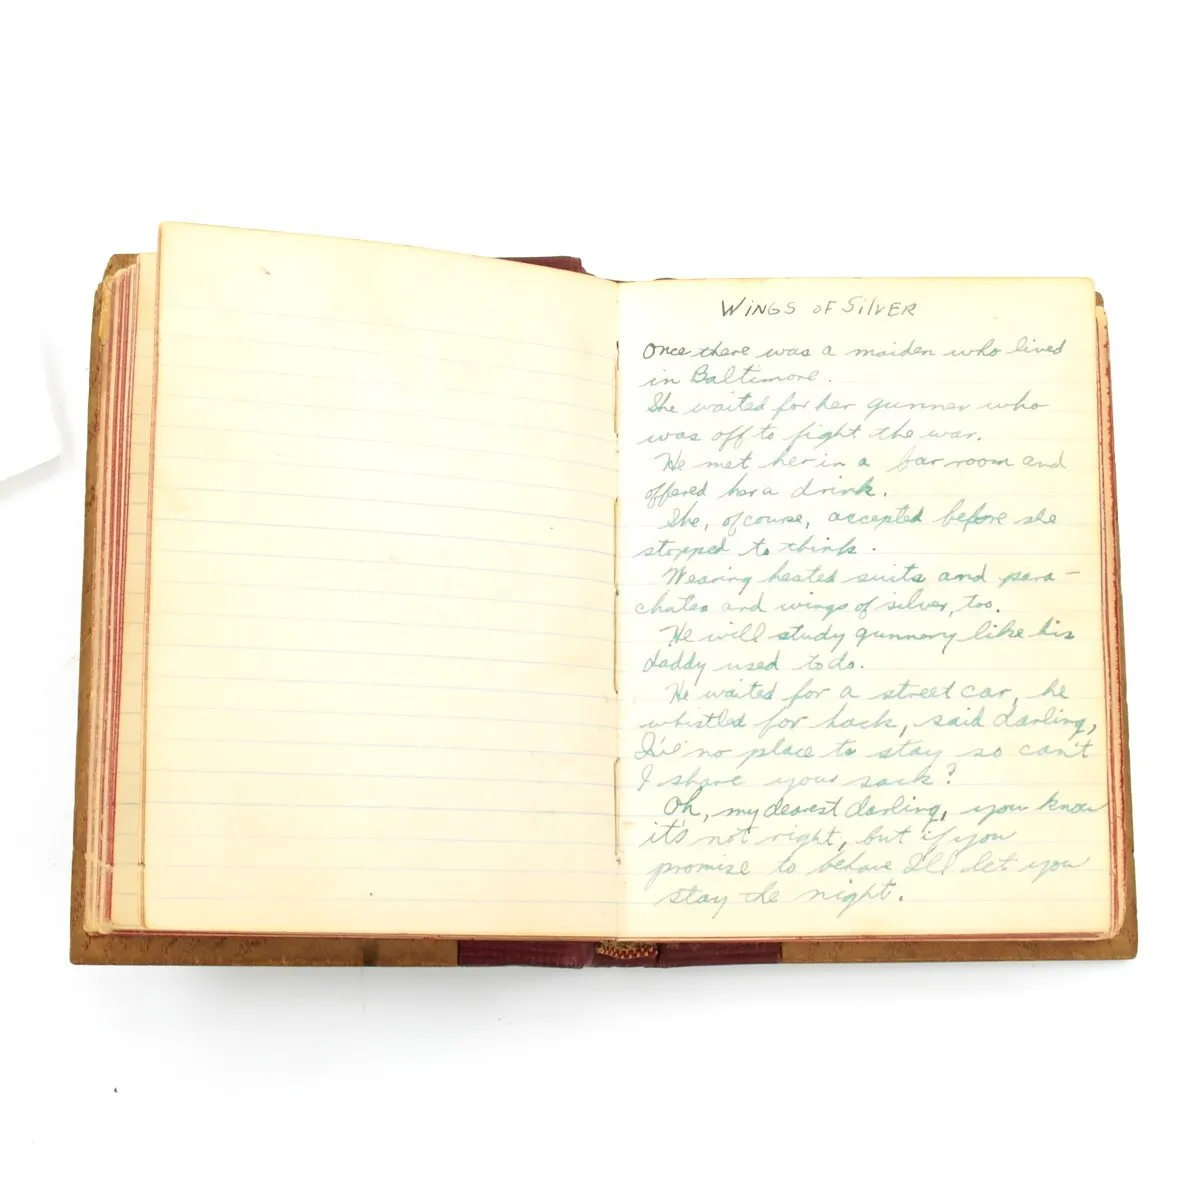 WINGS OF SILVER
Once there was a maiden who lived
in Baltimore.
She waited for her gunner who
was off to fight the war.
He met her in a bar room and
offered her a drink.
She, of course, accepted before she
stopped to think.
Wearing heated suits and para-
chutes and wings of silver, too.
He will study gunnery like his
daddy used to do.
He waited for a street car, he
whistled for hack, said darling,
I've no place to stay so can't
I share your sack?
Oh, my dearest darling, you know
it's not right, but if you
promise to behave I'll let you
stay the night.